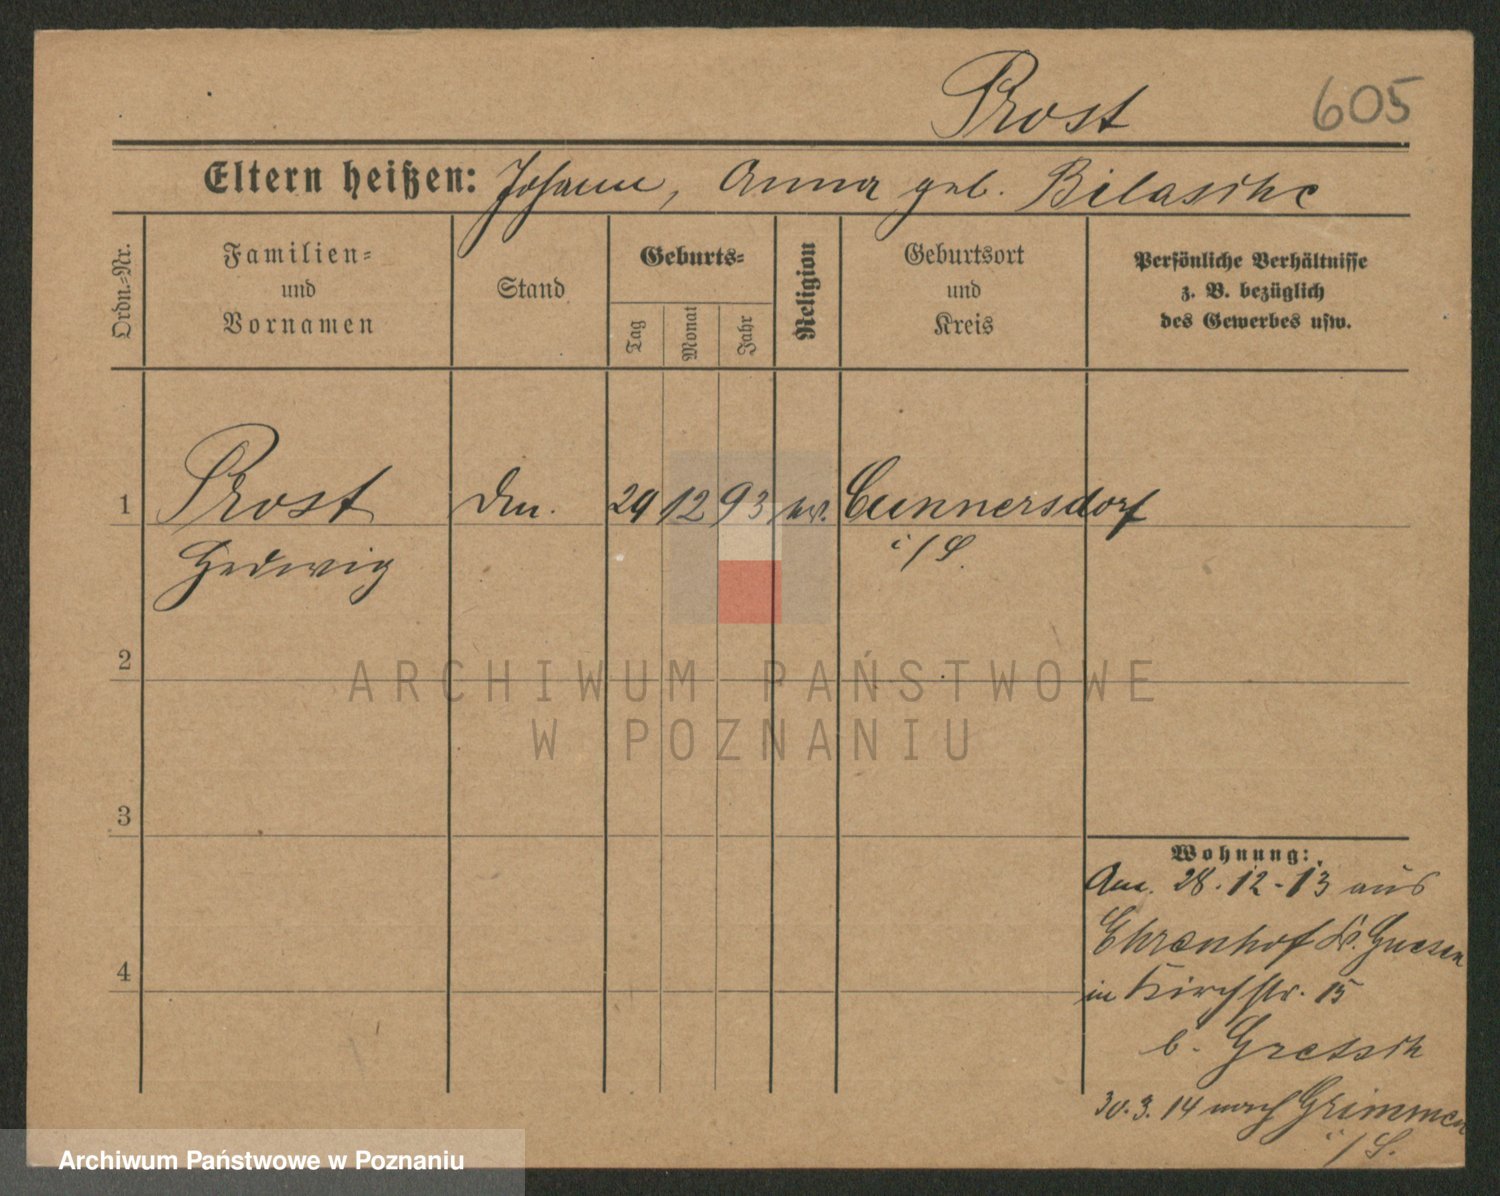 Prost 605
Eltern heißen: Johann, Anna geb. Bilaschke
Ordn.-Nr.
Familien-
und
Vornamen
Stand
Geburts-
Tag
Monat
Jahr
Religion
Geburtsort
und
Kreis
Persönliche Verhältnisse
z. B. bezüglich
des Gewerbes usw.
1 Prost 29 12 93 ev. Cunnersdorf
Hedwig i/S.
2
3
4
Wohnung:
28.12.13 aus
Ehrenhof Kr. Gnesen
in Kirchstr. 15
b.
30.3.14 nach Grimmen
i/S.
ARCHIWUM PAŃSTWOWE
W POZNANIU
Archiwum Państwowe w Poznaniu